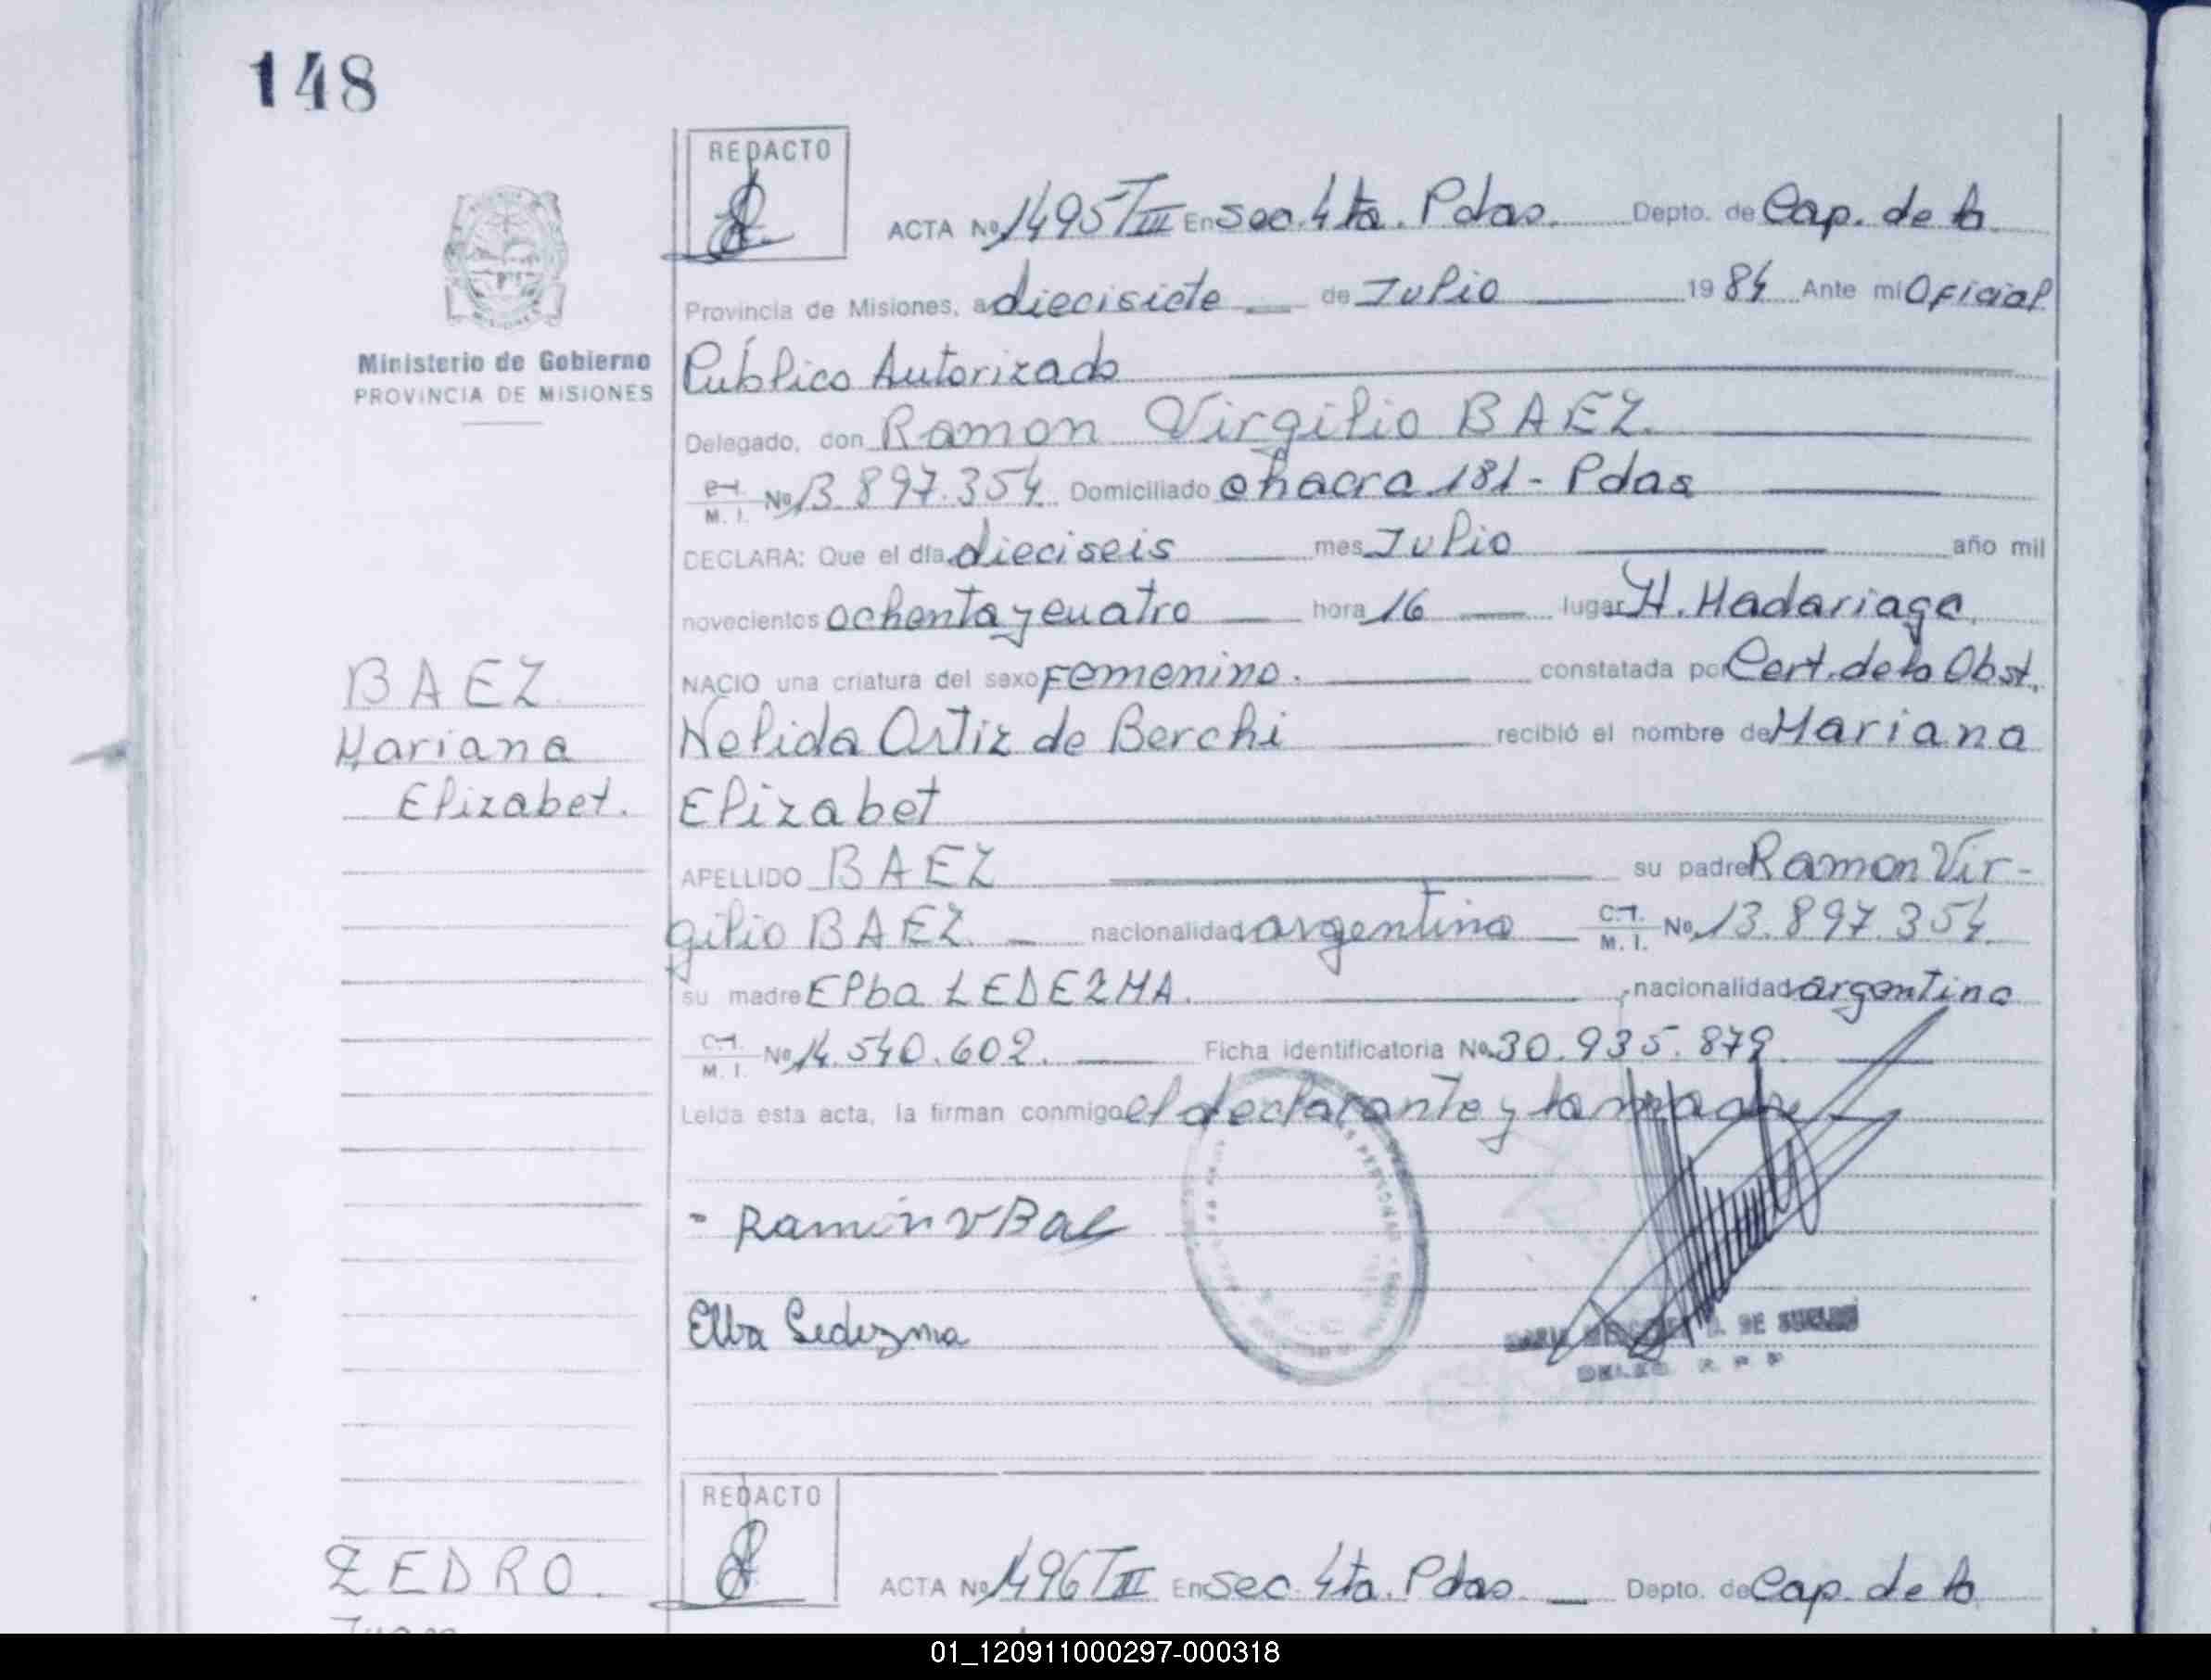 148
REDACTO
ACTA Nº 1495 T III En Sec. 4ta. Pdas. Depto. de Cap. de la
Provincia de Misiones, a diecisiete de Julio 1984 Ante mi Oficial
Ministerio de Gobierno
PROVINCIA DE MISIONES
Público Autorizado
Delegado, don Ramon Virgilio BAEZ.
C.I. M. I. Nº 13.897.354 Domiciliado chacra 181 - Pdas
DECLARA: Que el día dieciseis mes Julio año mil
novecientos ochenta y cuatro hora 16 lugar H. Madariaga.
BAEZ
Mariana
Elizabet.
NACIO una criatura del sexo Femenino. constatada por Cert. de la Obst.
Nelida Ortiz de Berchi recibió el nombre de Mariana
Elizabet
APELLIDO BAEZ su padre Ramon Vir-
gilio BAEZ nacionalidad argentina C.I. M. I. Nº 13.897.354
su madre Elba LEDEZMA. nacionalidad argentina
C.I. M. I. Nº 14.540.602. Ficha identificatoria Nº 30.935.879.
Leida esta acta, la firman conmigo el declarante y la madre
- Ramón V Bae
Elba Ledezma
DE
DELEG. R. P. P
REDACTO
ZEDRO.
ACTA Nº 1496 T III En Sec. 4ta. Pdas. Depto. de Cap. de la
01_120911000297-000318